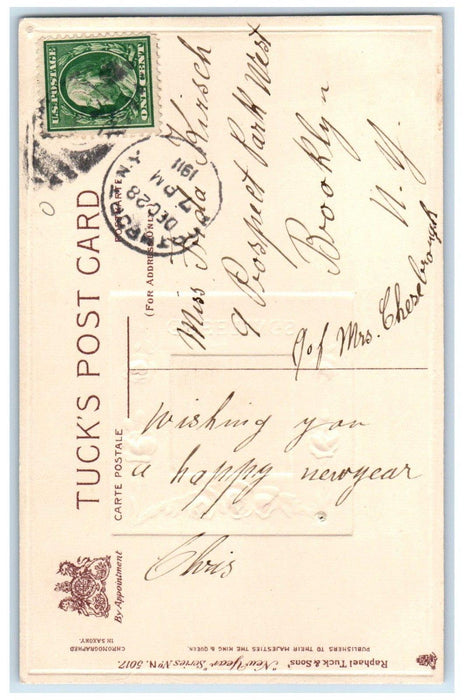 TUCK'S POST CARD
CARTE POSTALE
POSTKARTE
(FOR ADDRESS ONLY)
By Appointment
U.S. POSTAGE
ONE CENT
N.Y.
DEC 28
7 PM
1911
Miss Freda Kirsch
9 Prospect Park West
Brooklyn
N. Y.
c/o of Mrs. Chesebrough
Wishing you
a happy newyear
Chris
Raphael Tuck & Sons' "New Year" Series No N. 5017.
PUBLISHERS TO THEIR MAJESTIES THE KING & QUEEN.
CHROMOGRAPHED
IN SAXONY.